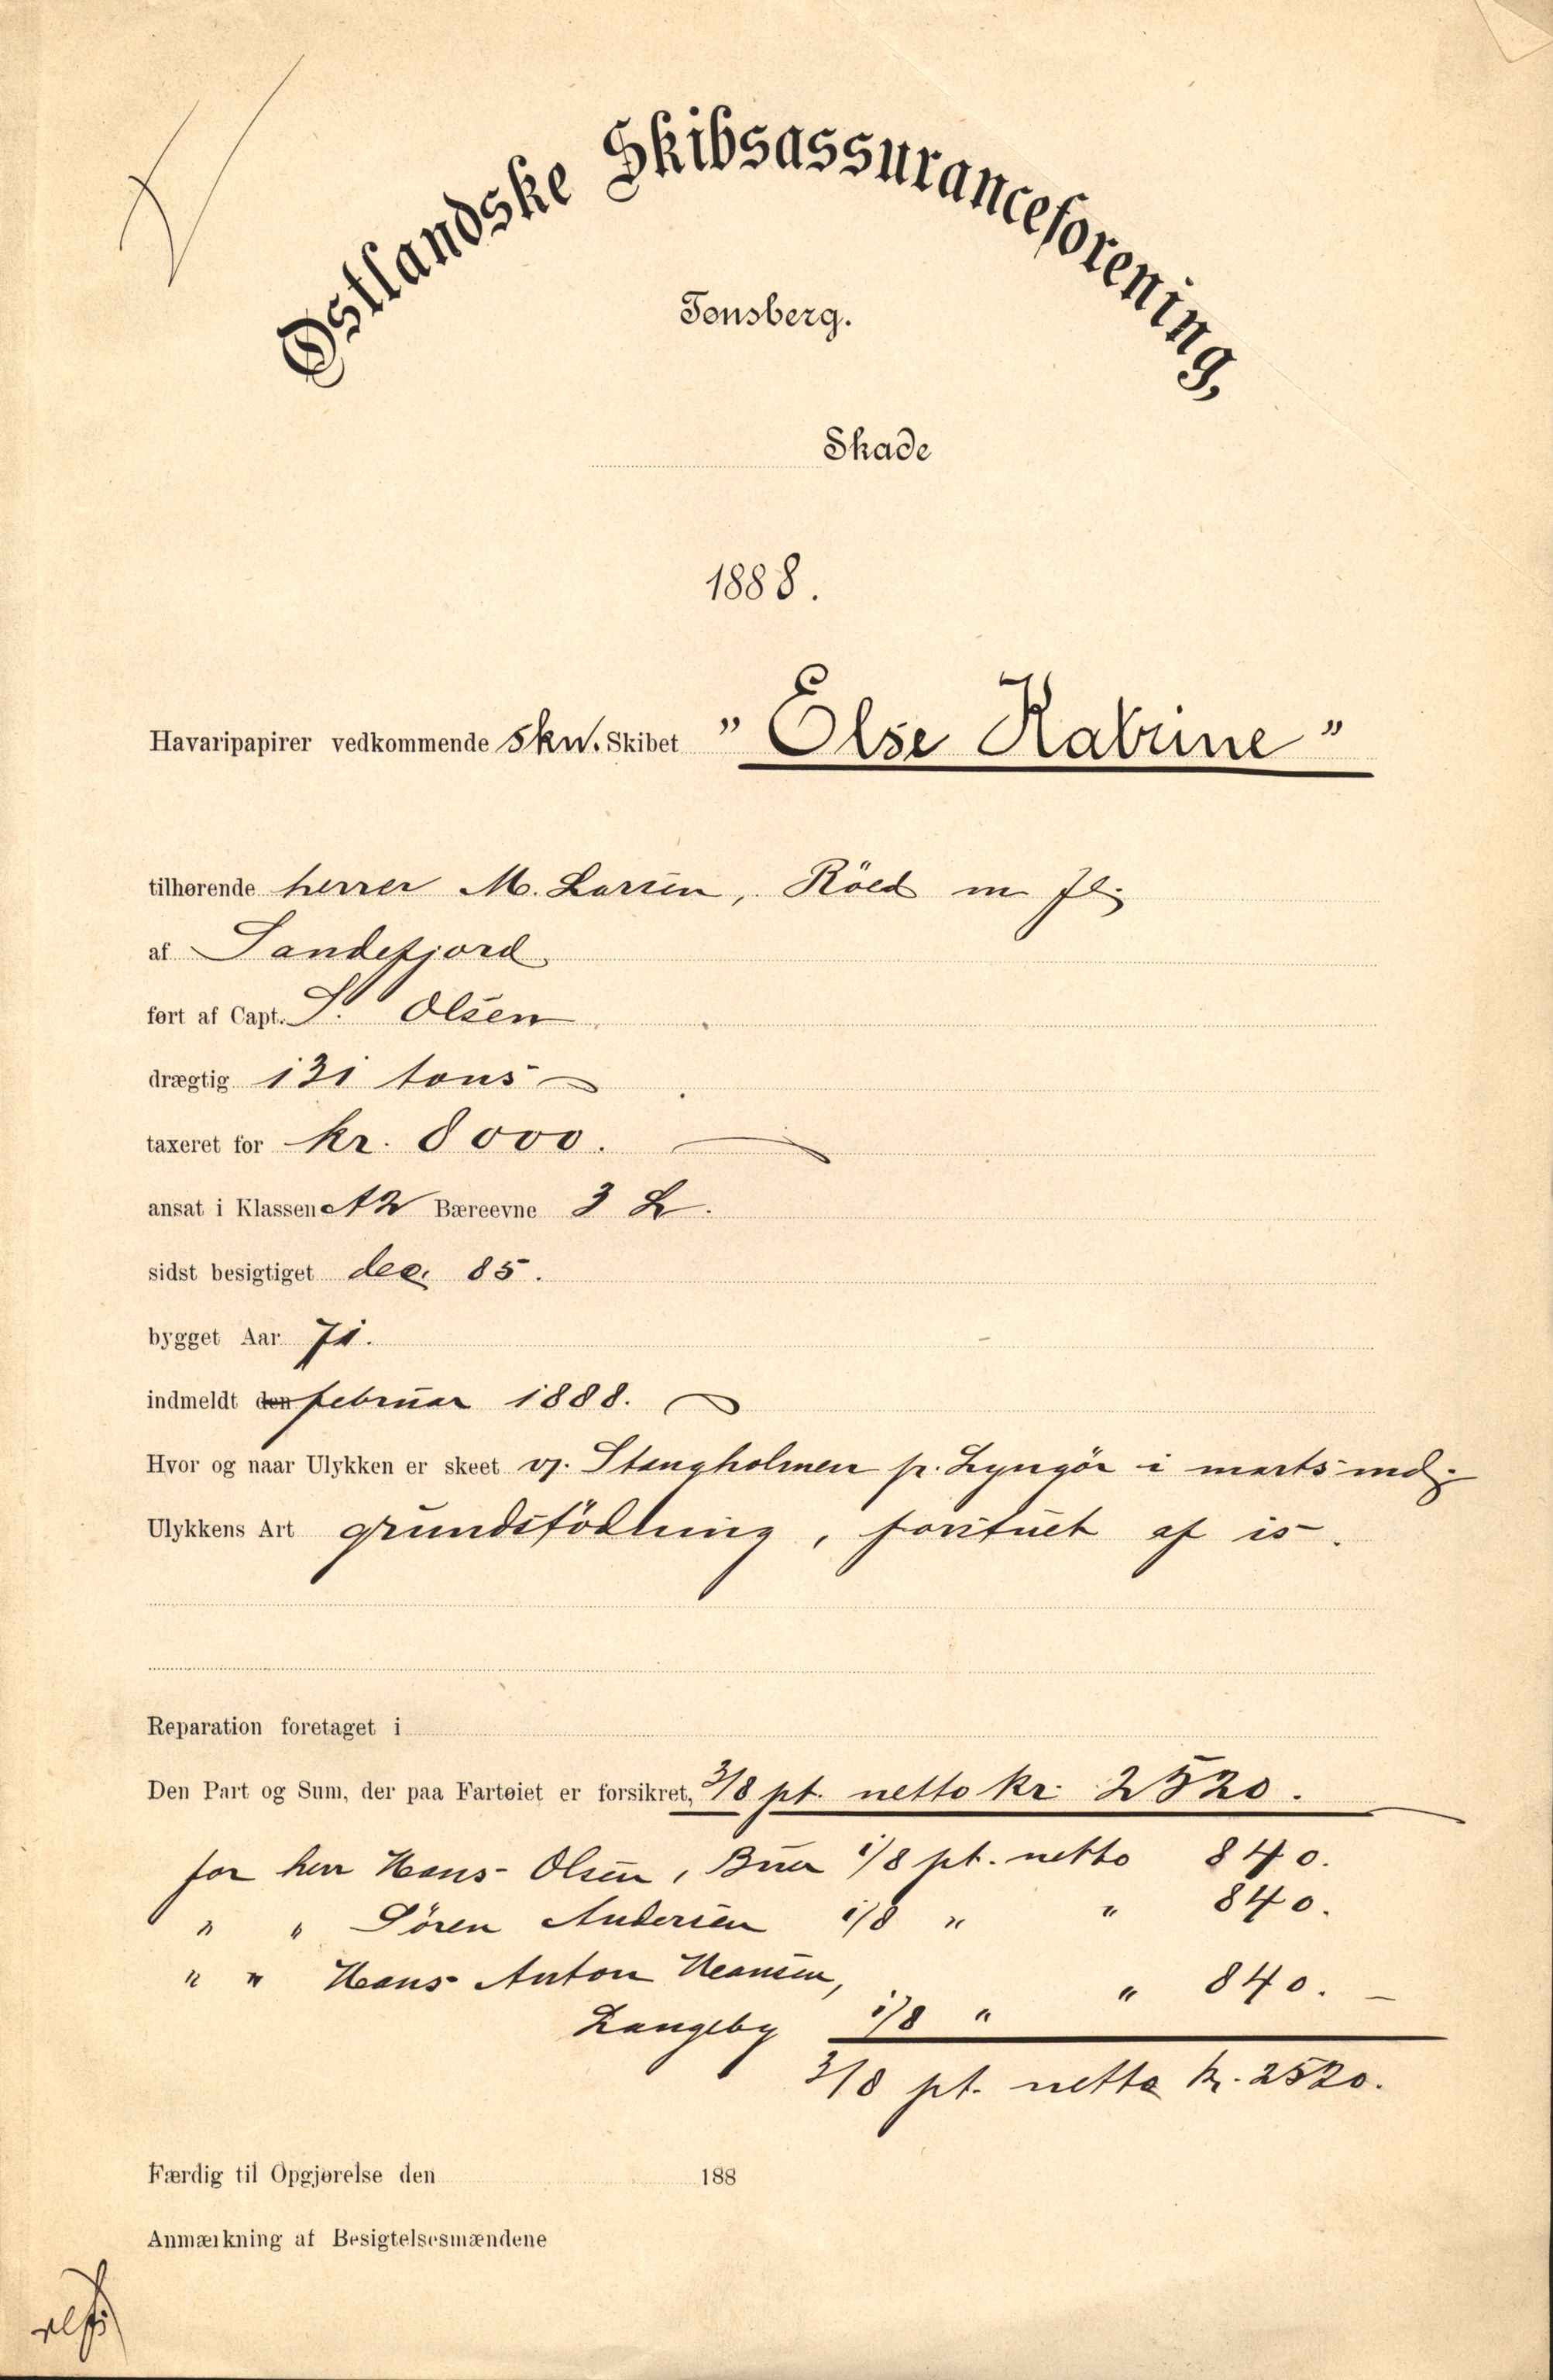 Østlandske Skibsassuranceforening,
Tønsberg.
Skade
1888.
Havaripapirer vedkommende Skn. Skibet "Else Katrine"
tilhørende herrer M. Larsen, Röed m fl.
af Sandefjord
ført af Capt. S. Olsen
drægtig 131 tons
taxeret for kr. 8000.
ansat i Klassen A2 Bæreevne 3 L.
sidst besigtiget dec. 85.
bygget Aar 71.
indmeldt den februar 1888.
Hvor og naar Ulykken er skeet v. Stangholmen p. Lyngör i marts md.
Ulykkens Art grundstödning, forstuet af is.
Reparation foretaget i
Den Part og Sum, der paa Fartøiet er forsikret, 3/8 pt. netto kr. 2520.
for herr Hans Olsen, Buer 1/8 pt. netto 840.
" " Sören Andersen 1/8 " " 840.
" " Hans Anton Hansen, " 840. —
Langeby 1/8 "
3/8 pt. netto kr. 2520.
Færdig til Opgjørelse den 188
Anmærkning af Besigtelsesmændene